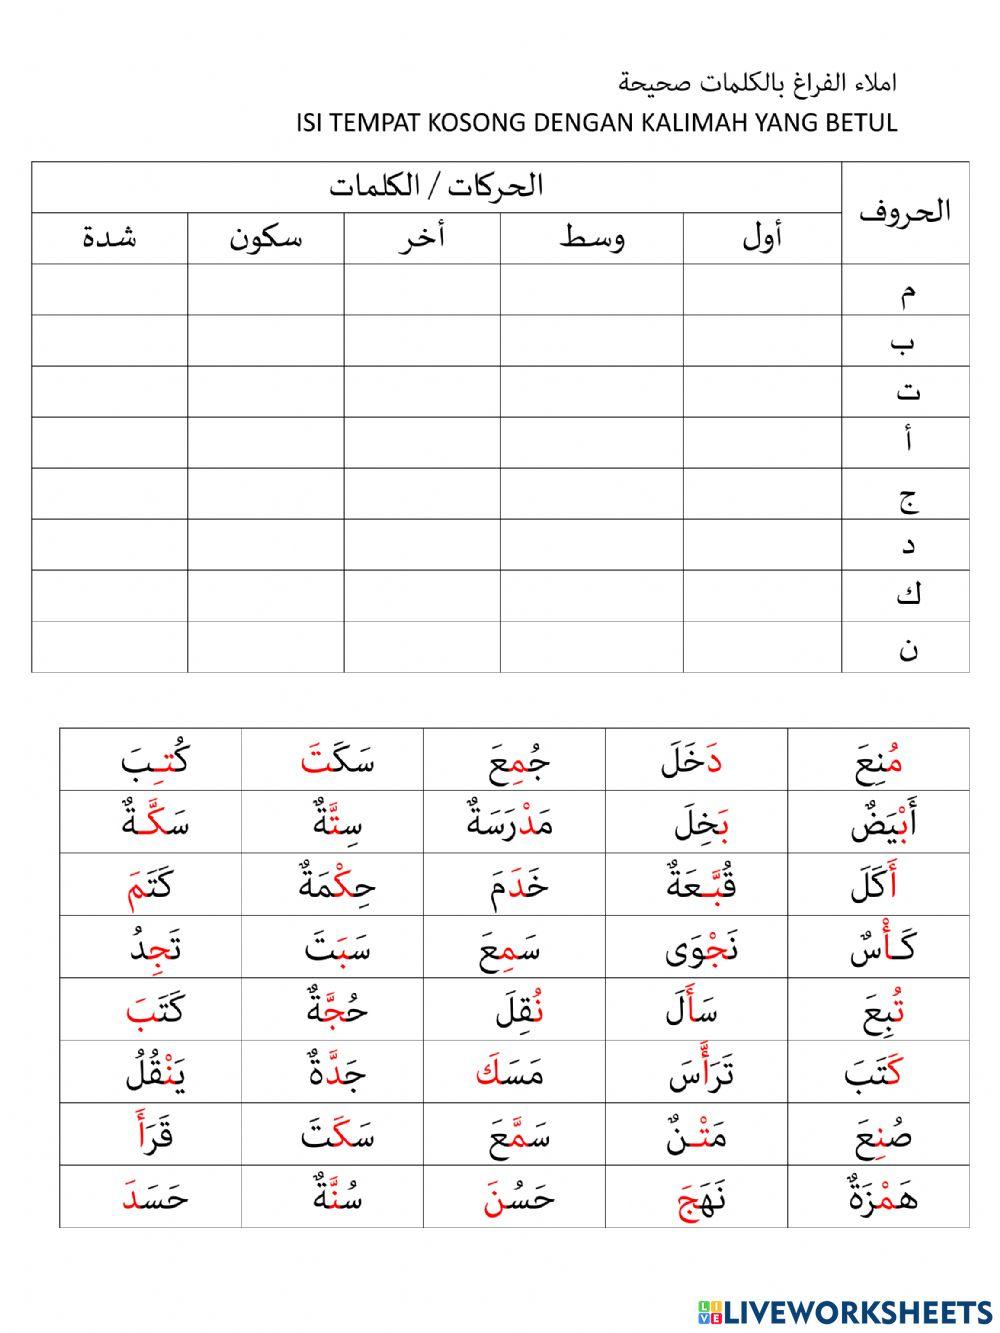 املاء الفراغ بالكلمات صحيحة
ISI TEMPAT KOSONG DENGAN KALIMAH YANG BETUL
الحروف الحركات / الكلمات
أول وسط أخر سكون شدة
م
ب
ت
أ
ج
د
ك
ن
مُنِعَ دَخَلَ جُمِعَ سَكَتَ كُتِبَ
أَبْيَضٌ بَخِلَ مَدْرَسَةٌ سِتَّةٌ سَكَّةٌ
أَكَلَ قُبَّعَةٌ خَدَمَ حِكْمَةٌ كَتَمَ
كَأْسٌ نَجْوَى سَمِعَ سَبَتَ تَجِدُ
تُبِعَ سَأَلَ نُقِلَ حُجَّةٌ كَتَبَ
كَتَبَ تَرَأَّسَ مَسَكَ جَدَّةٌ يَنْقُلُ
صُنِعَ مَتْنٌ سَمَّعَ سَكَتَ قَرَأَ
هَمْزَةٌ نَهَجَ حَسُنَ سُنَّةٌ حَسَدَ
LIVE LIVEWORKSHEETS